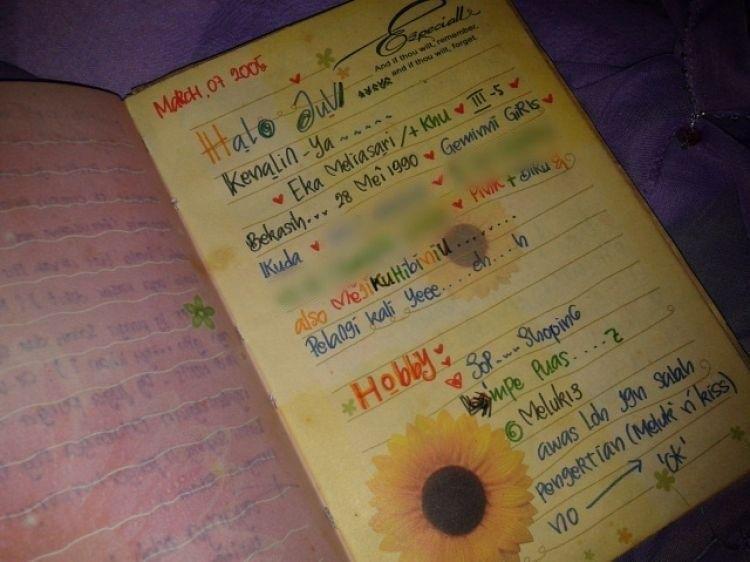 Especiall
And if thou wilt, remember,
and if thou wilt, forget.
March, 07 2005
Halo Juvi
Kenalin-Ya ~~~~~
Eka Meliasari /+ Khu III-5
Bekasih... 28 Mei 1990 Geminni GiRLS
IKuda
Pink + Biku
also MeJiKuHibiniU........
Pelangi kali yeee.... eh...h
Hobby Sop... Shoping
mpe Puas.....z
@ Melukis
awas Loh Jgn Salah
Pengertian (Meluki n' kiss)
no → 'OK'